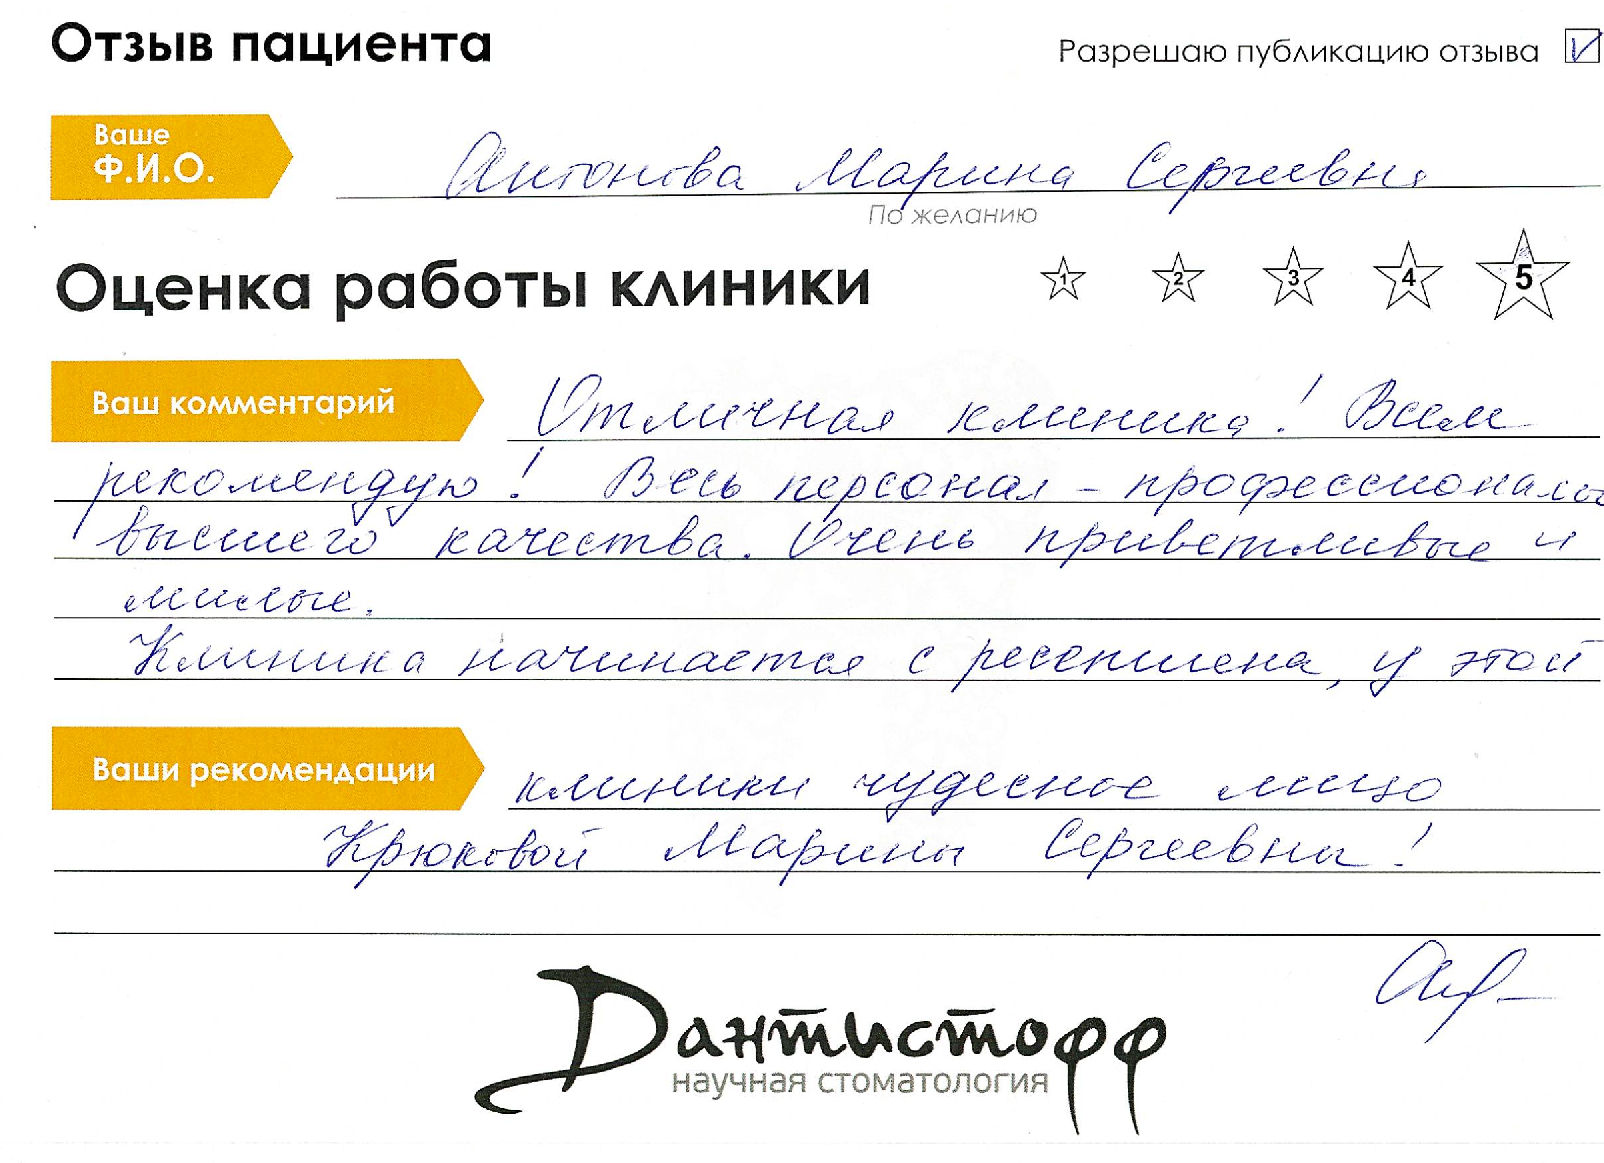 Отзыв пациента
Разрешаю публикацию отзыва
Ваше
Ф.И.О.
Антонова Марина Сергеевна
По желанию
Оценка работы клиники
1 2 3 4 5
Ваш комментарий
Отличная клиника! Всем
рекомендую! Весь персонал - профессионалы
высшего качества. Очень приветливые и
милые.
Клиника начинается с ресепшена, у этой
Ваши рекомендации
клиники чудесное лицо
Крюковой Марины Сергеевны!
Дантистофф
научная стоматология